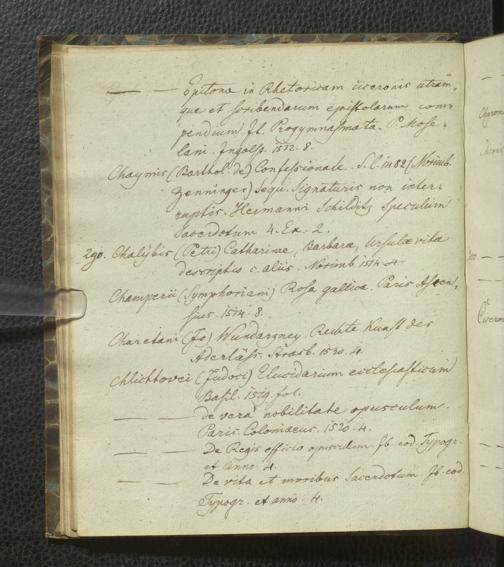 — — Epitome in Rhetoricam Ciceronis utram,
que et scribendarum epistolarum com¬
pendium It. Progymnasmata. P. Mose¬
lani. Ingolst. 1572. 8.
Chaymis (Barthol. de) Confessionale. S. l. 1482 (Norimb.
Zenninger) sequ. Signaturis non inter¬
ruptis. Hermanni Schilditz Speculum
Sacerdotum 4. Ex. 2.
290. Chalybis (Petri) Catharinae, Barbara, Ursulae vita
descriptio c. aliis. Norimb 1514. 4.
Champerii (Symphoriani) Rosa gallica. Paris Ascen,
sius. 1514. 8.
Charetani (Jo) Wundarzney. Rechte Kunst des
Aderläss. Strasb. 1530. 4.
Chlichtovei (Judoci) Elucidarium ecclesiasticum
Basil. 1519. fol.
— — de vera nobilitate opusculum.
Paris. Colinaeus. 1520. 4.
— — De Regis officio opusculum. Ib. eod. Typogr.
et Anno. 4.
— — De vita et moribus Sacerdotum Ib. eod.
Typogr. et anno. 4.